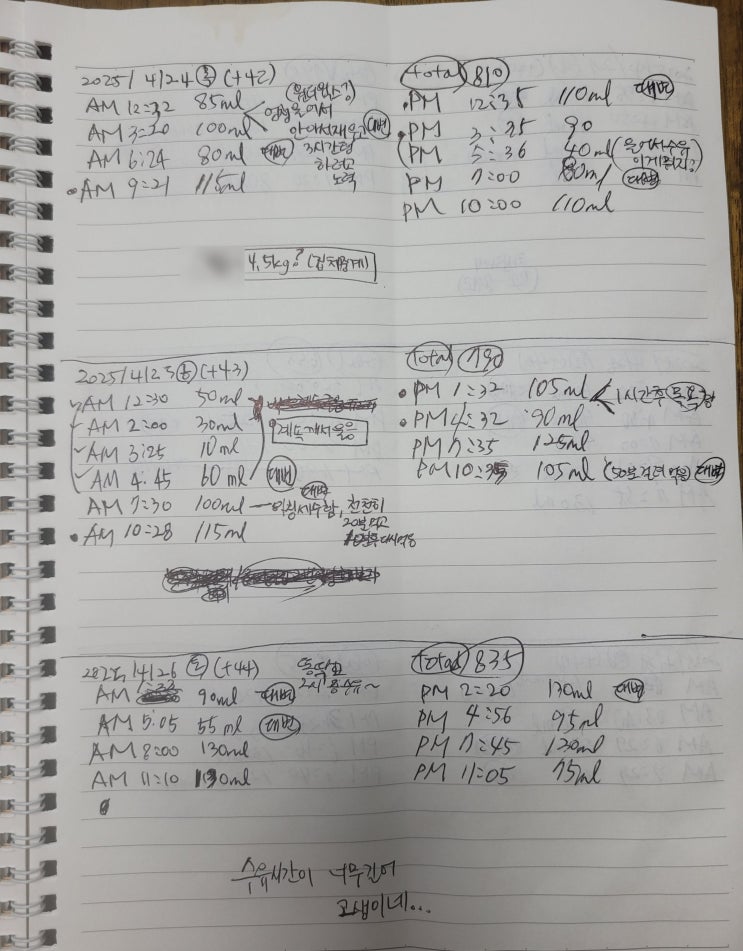 2025/4/24 목 (+42)
AM 12:32 85ml (원더윅스?)
AM 3:20 100ml 대변
AM 6:24 80ml 대변 3시간텀
하려고
노력
AM 9:21 115ml
4.5kg? (집체중계)
total 810
PM 12:35 110ml 대변
PM 3:25 90
PM 5:36 40ml
PM 7:00 80ml 대변
PM 10:00 110ml
2025/4/25 금 (+43)
AM 12:30 50ml
AM 2:00 30ml 계속깨서울음
AM 3:25 10ml
AM 4:45 60ml 대변
AM 7:30 100ml 대변 천천히
20분먹고
AM 10:28 115ml
total 790
PM 1:32 105ml 1시간후
PM 4:32 90ml
PM 7:35 125ml
PM 10: 105ml (50분 걸려 먹음) 대변
4/26 토 (+44)
AM 90ml 대변
AM 5:05 55ml 대변
AM 8:00 130ml
AM 11:10
total 835
PM 2:20 130ml 대변
PM 4:56 95ml
PM 7:45
PM 11:05 75ml
수유시간이 너무길어
고생이네...